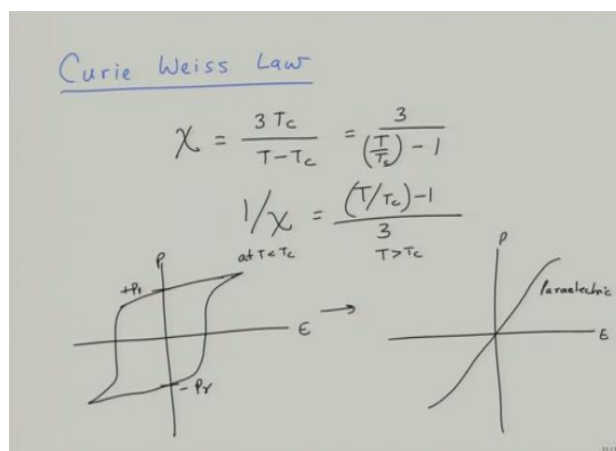 Curie Weiss Law
χ = 3Tc / (T - Tc) = 3 / ((T/Tc) - 1)
1/χ = ((T/Tc) - 1) / 3
at T < Tc
T > Tc
P
+Pr
E
- Pr
→
P
Paraelectric
E